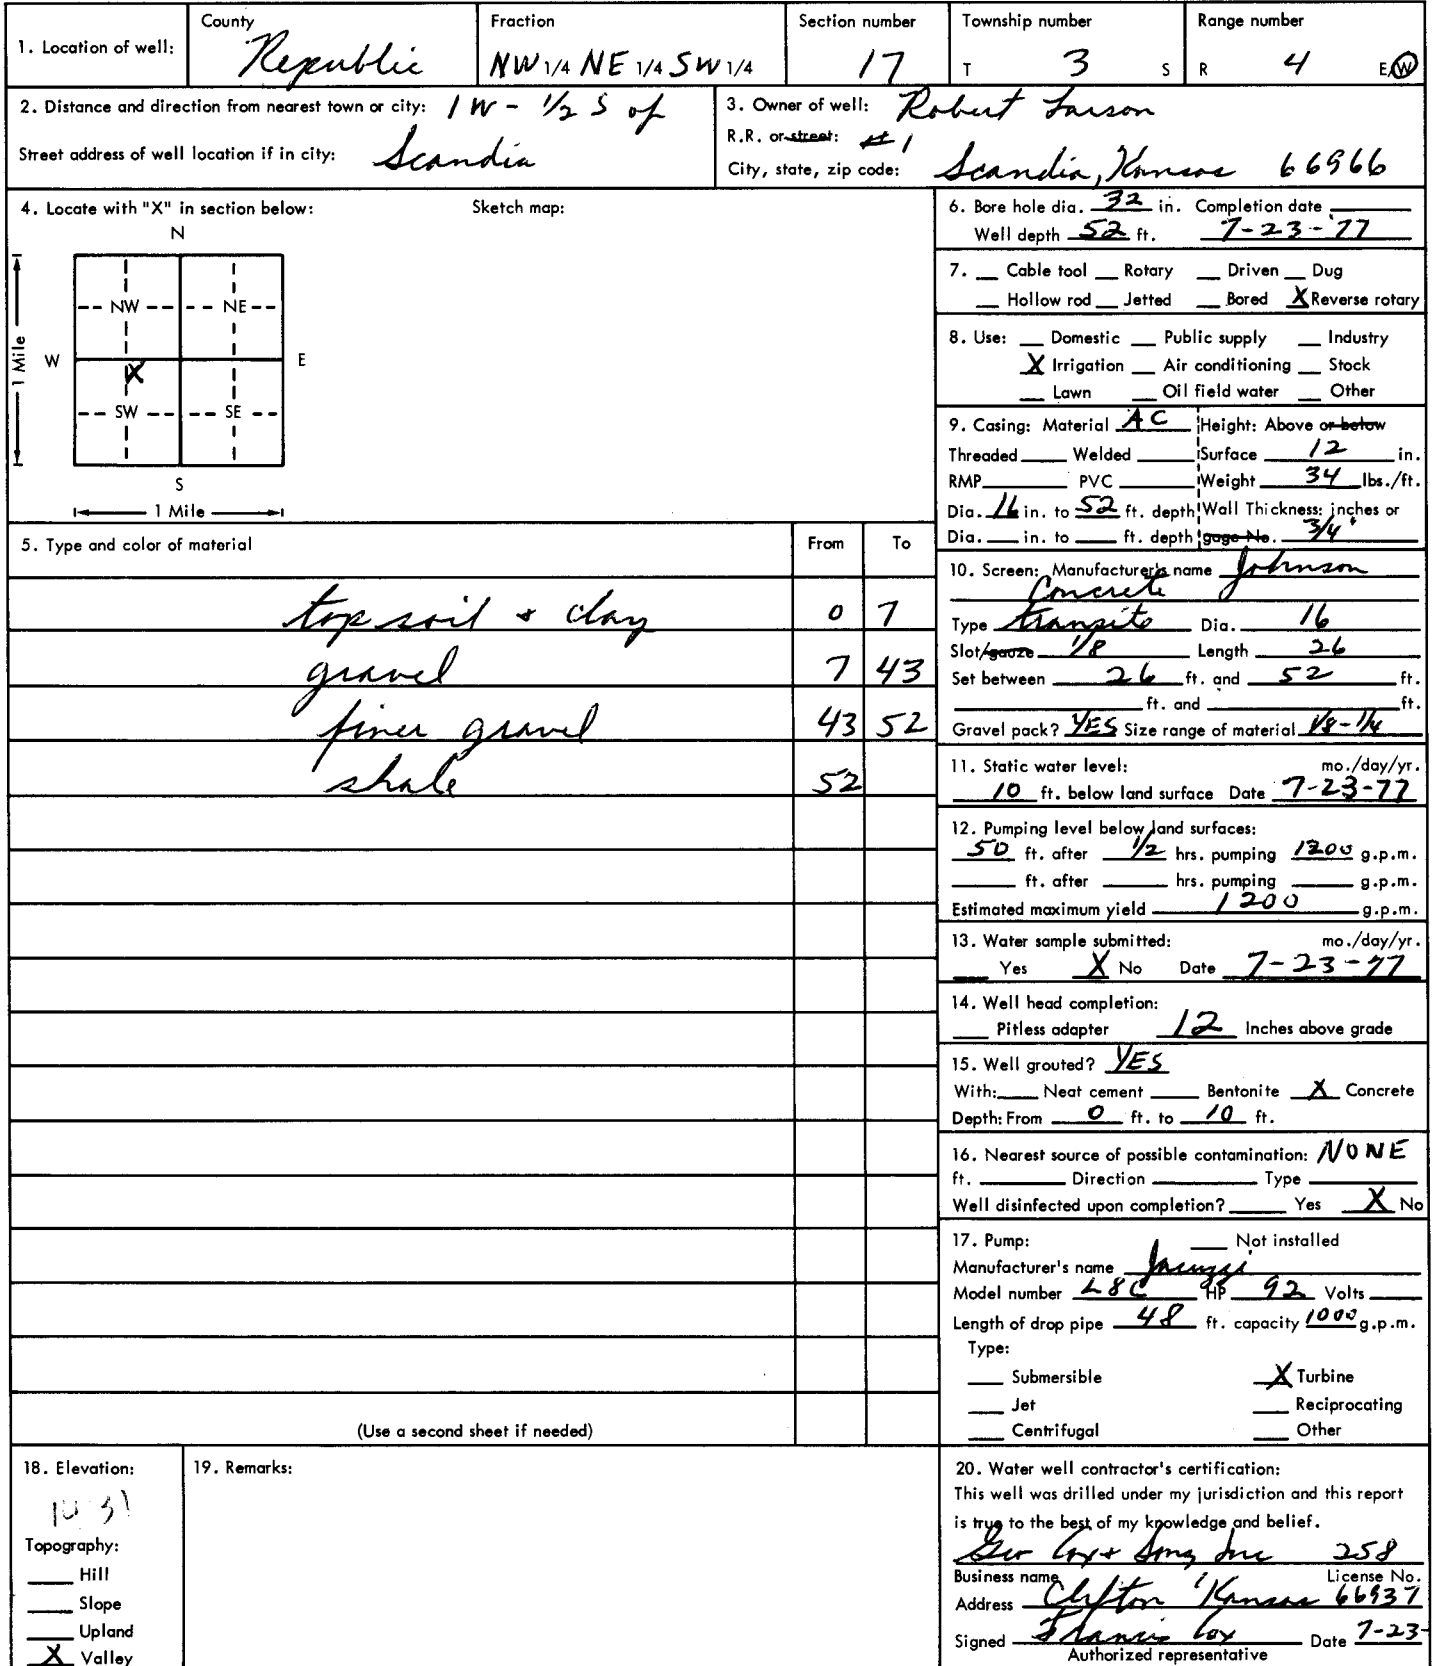 1. Location of well:
County
Republic
Fraction
NW 1/4 NE 1/4 SW 1/4
Section number
17
Township number
T 3 S
Range number
R 4 E/W
2. Distance and direction from nearest town or city: 1 W - 1/2 S of
Street address of well location if in city: Scandia
3. Owner of well: Robert Larson
R.R. or street: #1
City, state, zip code: Scandia, Kansas 66966
4. Locate with "X" in section below:
Sketch map:
N
NW NE
W E
1 Mile
X
SW SE
S
1 Mile
5. Type and color of material From To
top soil & clay 0 7
gravel 7 43
finer gravel 43 52
shale 52
(Use a second sheet if needed)
6. Bore hole dia. 32 in. Completion date
Well depth 52 ft. 7-23-'77
7. Cable tool Rotary Driven Dug
Hollow rod Jetted Bored X Reverse rotary
8. Use: Domestic Public supply Industry
X Irrigation Air conditioning Stock
Lawn Oil field water Other
9. Casing: Material AC Height: Above or below
Threaded Welded Surface 12 in.
RMP PVC Weight 34 lbs./ft.
Dia. 16 in. to 52 ft. depth Wall Thickness: inches or
Dia. in. to ft. depth gage No. 3/4"
10. Screen: Manufacturer's name Johnson
Concrete
Type transite Dia. 16
Slot/gauze 1/8 Length 26
Set between 26 ft. and 52 ft.
ft. and ft.
Gravel pack? YES Size range of material 1/8-1/4
11. Static water level: mo./day/yr.
10 ft. below land surface Date 7-23-77
12. Pumping level below land surfaces:
50 ft. after 1/2 hrs. pumping 1200 g.p.m.
ft. after hrs. pumping g.p.m.
Estimated maximum yield 1200 g.p.m.
13. Water sample submitted: mo./day/yr.
Yes X No Date 7-23-77
14. Well head completion:
Pitless adapter 12 Inches above grade
15. Well grouted? YES
With: Neat cement Bentonite X Concrete
Depth: From 0 ft. to 10 ft.
16. Nearest source of possible contamination: NONE
ft. Direction Type
Well disinfected upon completion? Yes X No
17. Pump: Not installed
Manufacturer's name Jacuzzi
Model number L8C HP 92 Volts
Length of drop pipe 48 ft. capacity 1000 g.p.m.
Type:
Submersible X Turbine
Jet Reciprocating
Centrifugal Other
18. Elevation:
Topography:
Hill
Slope
Upland
X Valley
19. Remarks:
20. Water well contractor's certification:
This well was drilled under my jurisdiction and this report
is true to the best of my knowledge and belief.
Geo Cox & Sons, Inc 258
Business name License No.
Address Clifton Kansas 66937
Signed Francis Cox Date 7-23-
Authorized representative